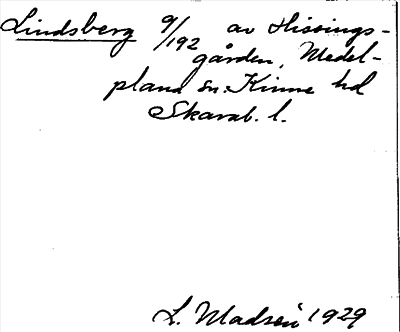 Lindsberg 9/192 av Hissings-
gården, Medel-
plana sn. Kinne hd
Skarab. l.
L. Madsén 1929